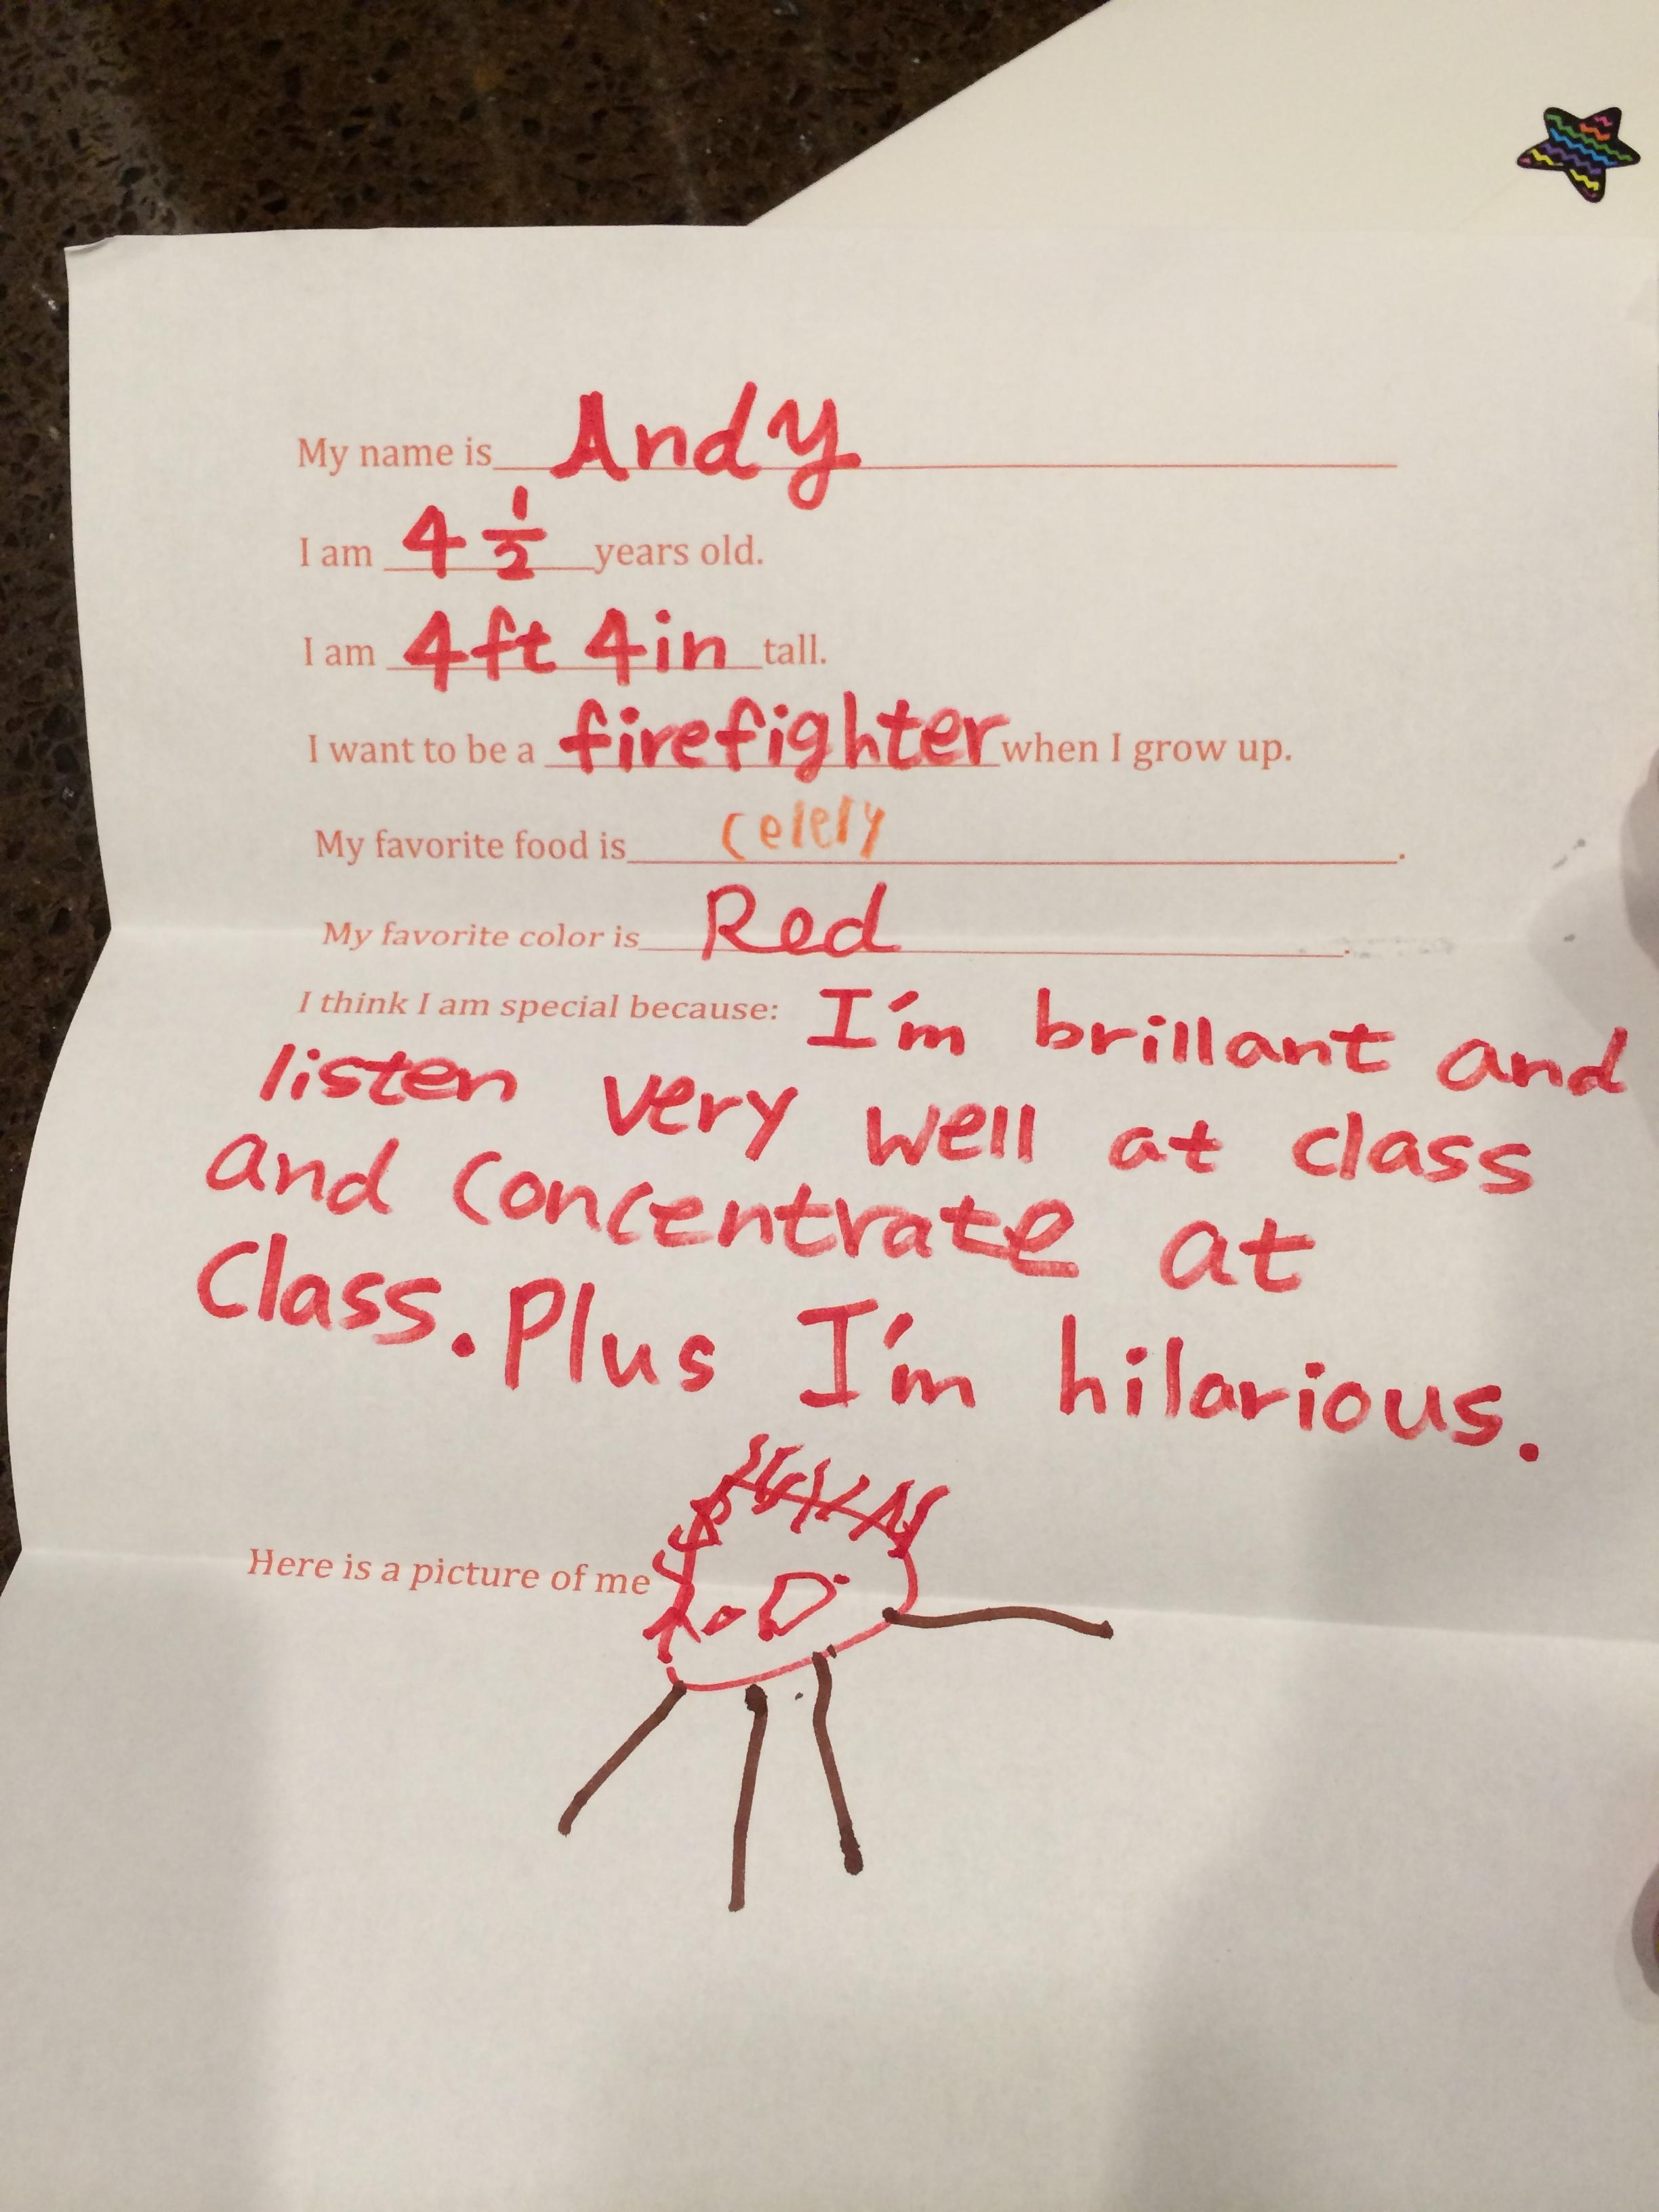 My name is Andy
I am 4 1/2 years old.
I am 4ft 4in tall.
I want to be a firefighter when I grow up.
My favorite food is celery.
My favorite color is Red.
I think I am special because: I'm brillant and
listen very well at class
and concentrate at
Class. Plus I'm hilarious.
Here is a picture of me